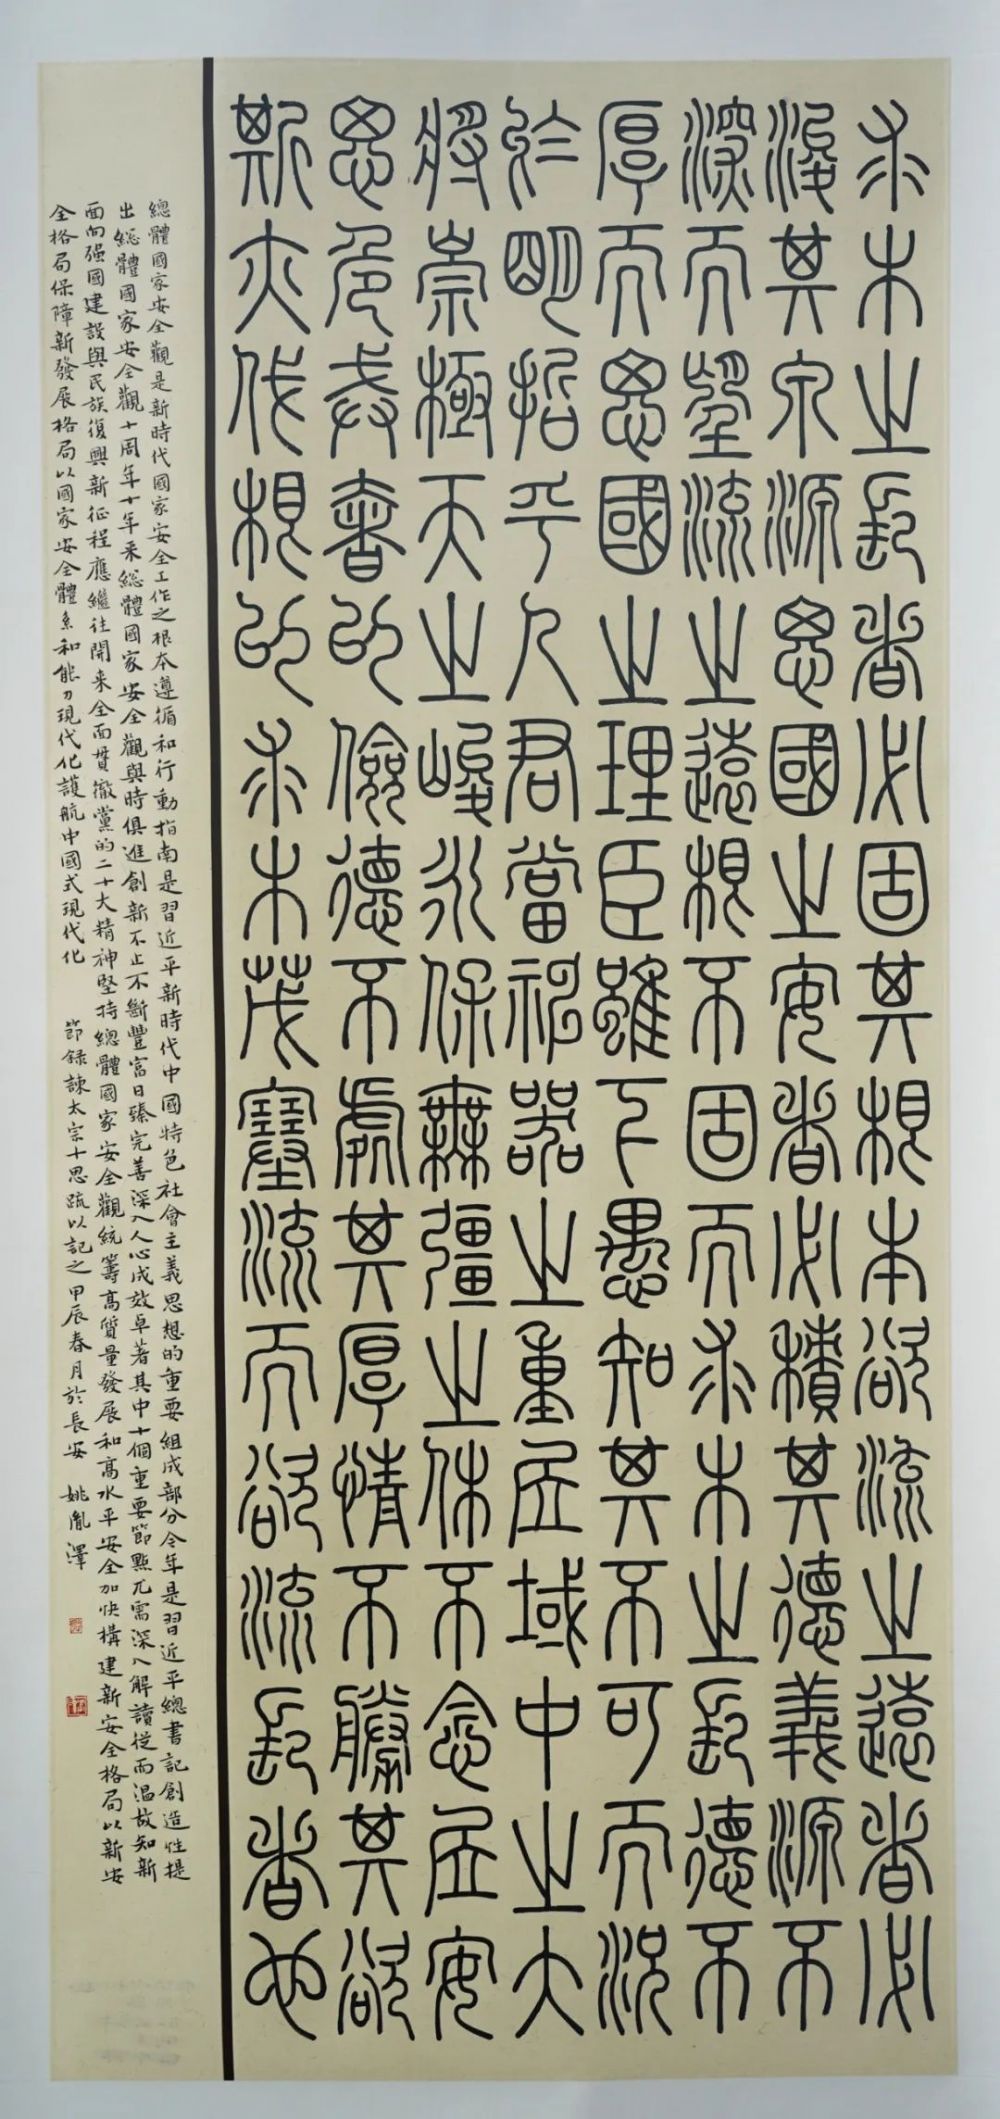 求木之長者必固其根本欲流之遠者必
浚其泉源思國之安者必積其德義源不
深而望流之遠根不固而求木之長德不
厚而思國之理臣雖下愚知其不可而況
於明哲乎人君當神器之重居域中之大
將崇極天之峻永保無疆之休不念居安
思危戒奢以儉德不處其厚情不勝其欲
斯亦伐根以求木茂塞流而欲流長者也
總體國家安全觀是新時代國家安全工作之根本遵循和行動指南是習近平新時代中國特色社會主義思想的重要組成部分今年是習近平總書記創造性提
出総體國家安全觀十周年十年來総體國家安全觀與時俱進創新不止不斷豐富日臻完善深入人心成效卓著其中十個重要節點尤需深入解讀從而温故知新
面向强國建設與民族復興新征程應繼往開来全面貫徹黨的二十大精神堅持總體國家安全觀統籌高質量發展和高水平安全加快構建新安全格局以新安
全格局保障新發展格局以國家安全體系和能力現代化護航中國式現代化 節録諫太宗十思疏以記之甲辰春月於長安 姚胤澤